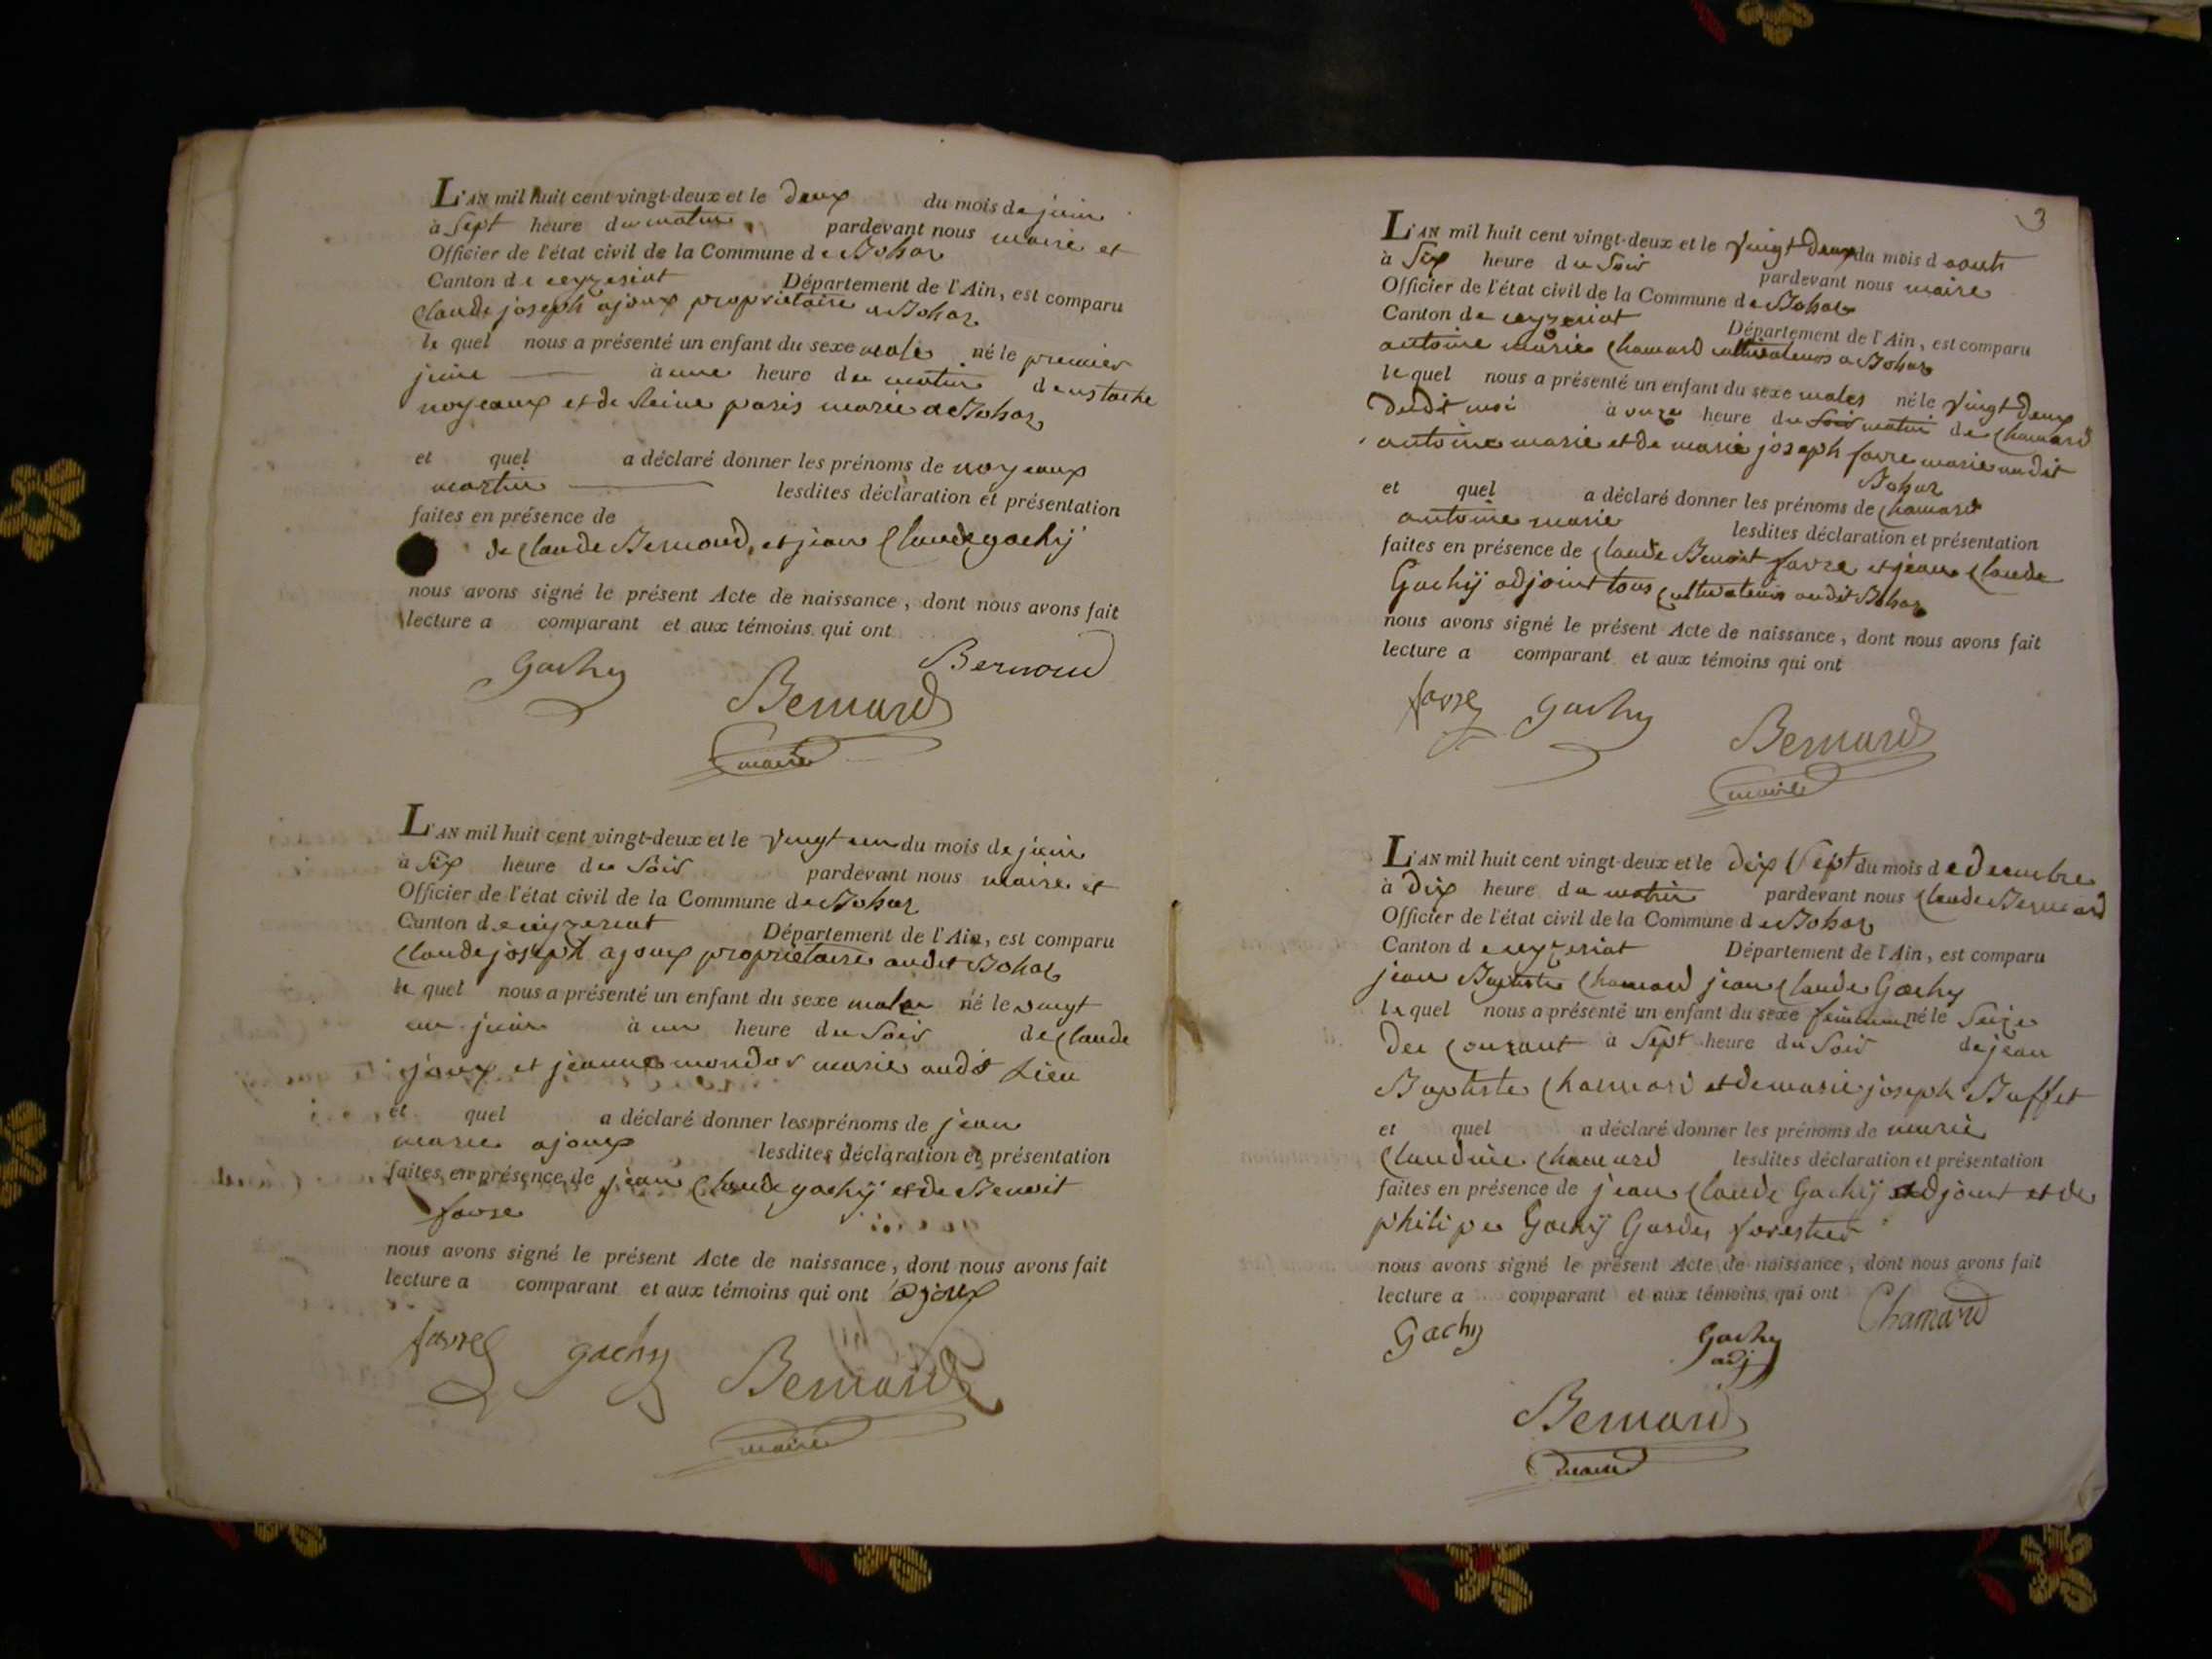 L'AN mil huit cent vingt-deux et le deux du mois de juin
à Sept heure du matin pardevant nous maire et
Officier de l'état civil de la Commune de Bohas
Canton de ceyzeriat Département de l'Ain, est comparu
Claude joseph ajoux proprietaire a Bohas
le quel nous a présenté un enfant du sexe male né le premier
juin à une heure du matin deustache
noyeaux et de Reine paris marie a Bohas
et quel a déclaré donner les prénoms de noyeaux
martin lesdites déclaration et présentation
faites en présence de
de Claude Bernoud, et jean Claude gachy
nous avons signé le présent Acte de naissance, dont nous avons fait
lecture a comparant et aux témoins qui ont
Gachy Bernard Bernoud
maire
L'AN mil huit cent vingt-deux et le vingt un du mois de juin
à Six heure du Soir pardevant nous maire et
Officier de l'état civil de la Commune de Bohas
Canton de ceyzeriat Département de l'Ain, est comparu
Claude joseph ajoux proprietaire audit Bohas
le quel nous a présenté un enfant du sexe male né le vingt
un juin à un heure du Soir de Claude
joux et jeanne mondos marie audit Lieu
et quel a déclaré donner les prénoms de jean
marie ajoux lesdites déclaration et présentation
faites en présence de jean Claude gachy et de Benoit
favre
nous avons signé le présent Acte de naissance, dont nous avons fait
lecture a comparant et aux témoins qui ont ajoux
favre gachy Bernard
maire
3
L'AN mil huit cent vingt-deux et le vingt deux du mois d aout
à Six heure du Soir pardevant nous maire
Officier de l'état civil de la Commune de Bohas
Canton de ceyzeriat Département de l'Ain, est comparu
antoine marie Chamard cultivateur a Bohas
le quel nous a présenté un enfant du sexe males né le vingt deux
dudit moi à onze heure du Soir matin de Chamard
antoine marie et de marie joseph favre marie audit
Bohas
et quel a déclaré donner les prénoms de Chamard
antoine marie lesdites déclaration et présentation
faites en présence de Claude Benoit favre et jean Claude
Gachy adjoint tous cultivateurs audit Bohas
nous avons signé le présent Acte de naissance, dont nous avons fait
lecture a comparant et aux témoins qui ont
favre gachy Bernard
maire
L'AN mil huit cent vingt-deux et le dix Sept du mois de decembre
à dix heure du matin pardevant nous Claude Bernard
Officier de l'état civil de la Commune de Bohas
Canton de ceyzeriat Département de l'Ain, est comparu
jean Baptiste Chamard jean Claude Gachy
le quel nous a présenté un enfant du sexe feminin né le Seize
du Courant à Sept heure du Soir de jean
Baptiste Chamard et de marie joseph Buffet
et quel a déclaré donner les prénoms de marie
Claudine Chamard lesdites déclaration et présentation
faites en présence de jean Claude Gachy adjoint et de
philipe Gachy Garde forestier
nous avons signé le présent Acte de naissance, dont nous avons fait
lecture a comparant et aux témoins qui ont Chamard
Gachy Gachy
adj
Bernard
maire